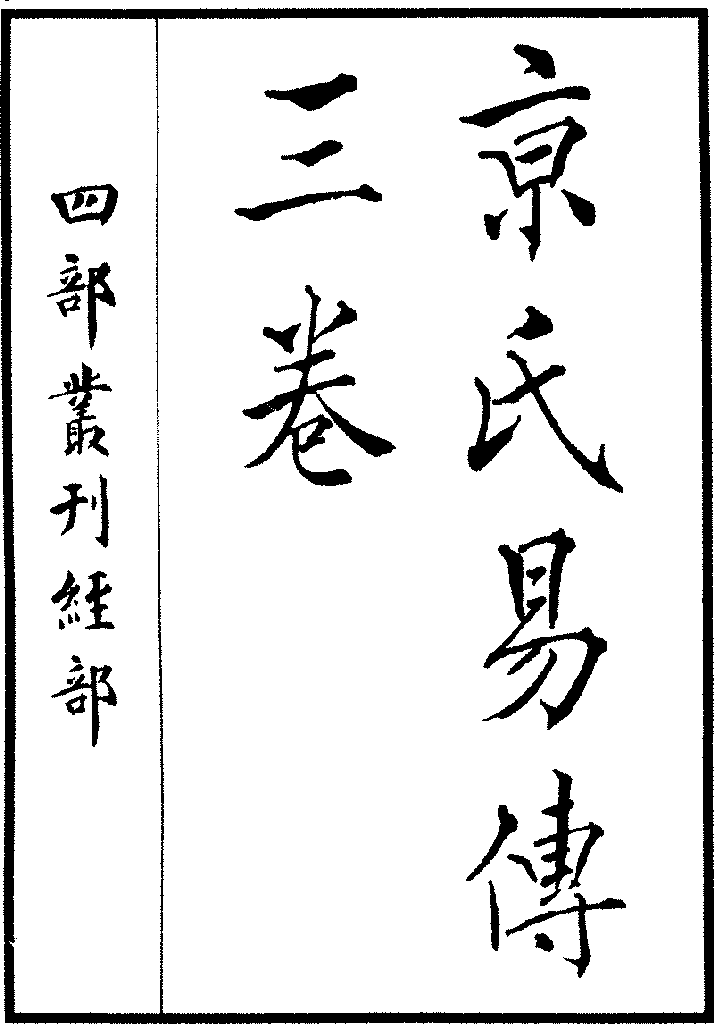 京氏易傳
三卷
四部叢刊經部